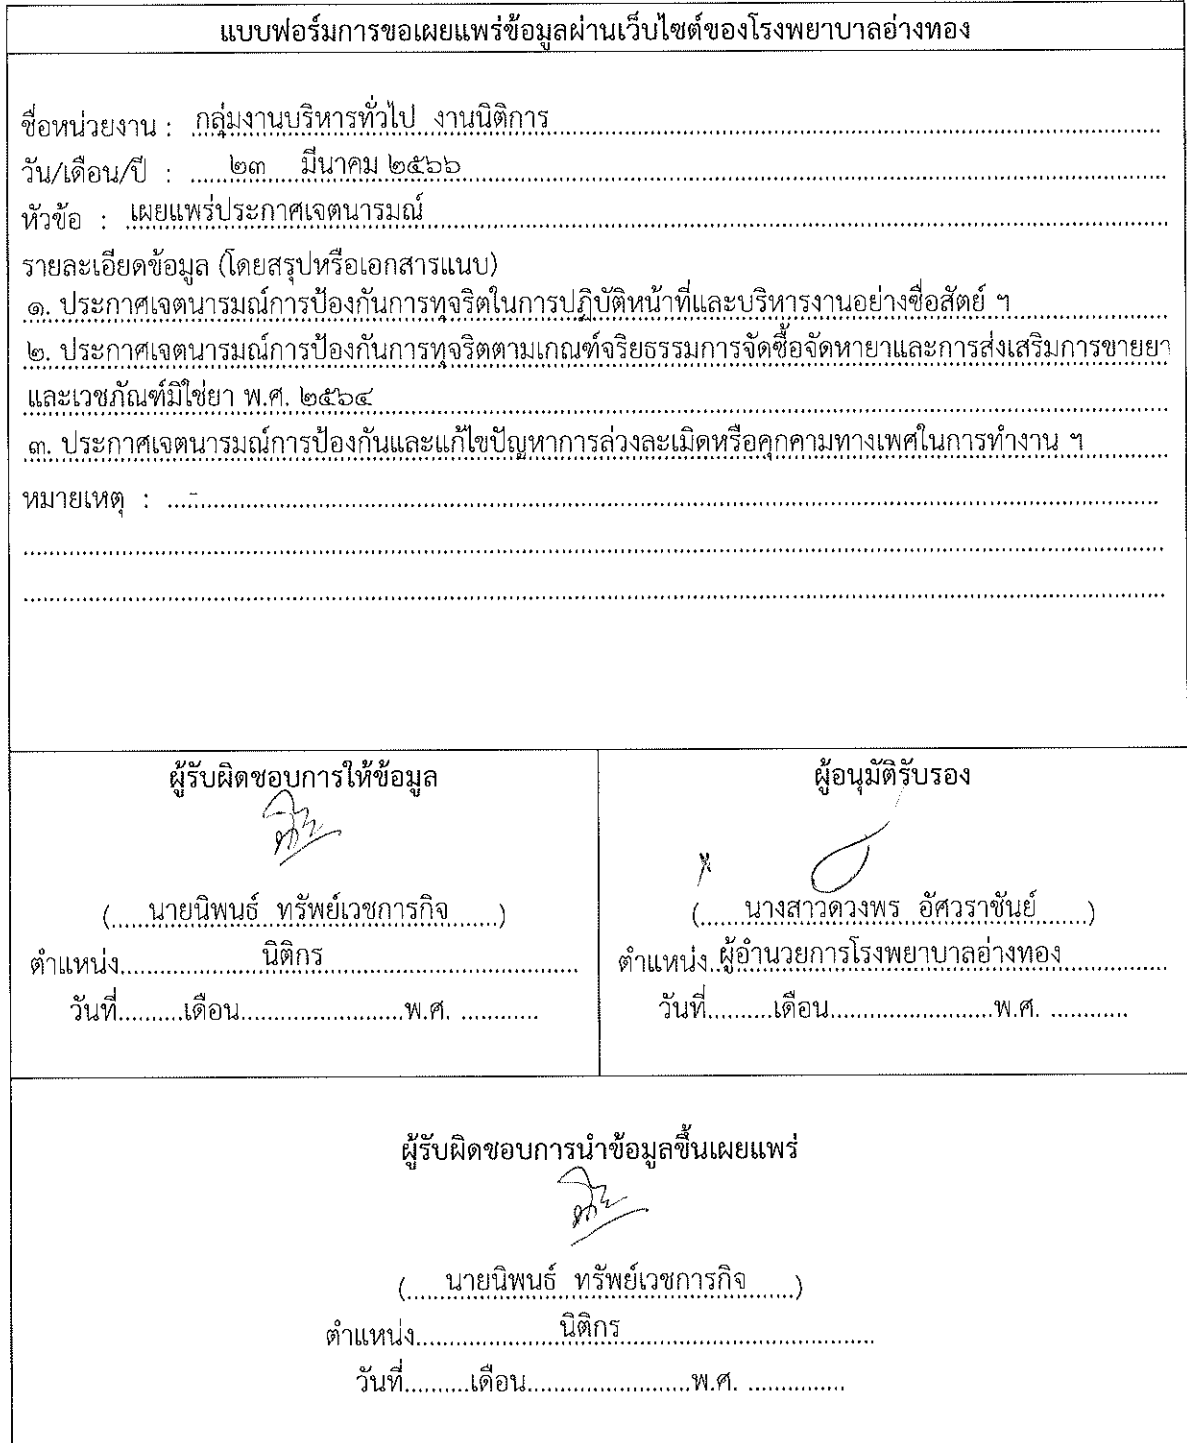 แบบฟอร์มการขอเผยแพร่ข้อมูลผ่านเว็บไซต์ของโรงพยาบาลอ่างทอง
ชื่อหน่วยงาน : กลุ่มงานบริหารทั่วไป งานนิติการ
วัน/เดือน/ปี : ๒๓ มีนาคม ๒๕๖๖
หัวข้อ : เผยแพร่ประกาศเจตนารมณ์
รายละเอียดข้อมูล (โดยสรุปหรือเอกสารแนบ)
๑. ประกาศเจตนารมณ์การป้องกันการทุจริตในการปฏิบัติหน้าที่และบริหารงานอย่างซื่อสัตย์ ฯ
๒. ประกาศเจตนารมณ์การป้องกันการทุจริตตามเกณฑ์จริยธรรมการจัดซื้อจัดหายาและการส่งเสริมการขายยา
และเวชภัณฑ์มิใช่ยา พ.ศ. ๒๕๖๔
๓. ประกาศเจตนารมณ์การป้องกันและแก้ไขปัญหาการล่วงละเมิดหรือคุกคามทางเพศในการทำงาน ฯ
หมายเหตุ : -
ผู้รับผิดชอบการให้ข้อมูล
(นายนิพนธ์ ทรัพย์เวชการกิจ)
ตำแหน่ง นิติกร
วันที่..........เดือน.........................พ.ศ. ............
ผู้อนุมัติรับรอง
(นางสาวดวงพร อัศวราชันย์)
ตำแหน่ง ผู้อำนวยการโรงพยาบาลอ่างทอง
วันที่..........เดือน.........................พ.ศ. ............
ผู้รับผิดชอบการนำข้อมูลขึ้นเผยแพร่
(นายนิพนธ์ ทรัพย์เวชการกิจ)
ตำแหน่ง นิติกร
วันที่..........เดือน.........................พ.ศ. ...............